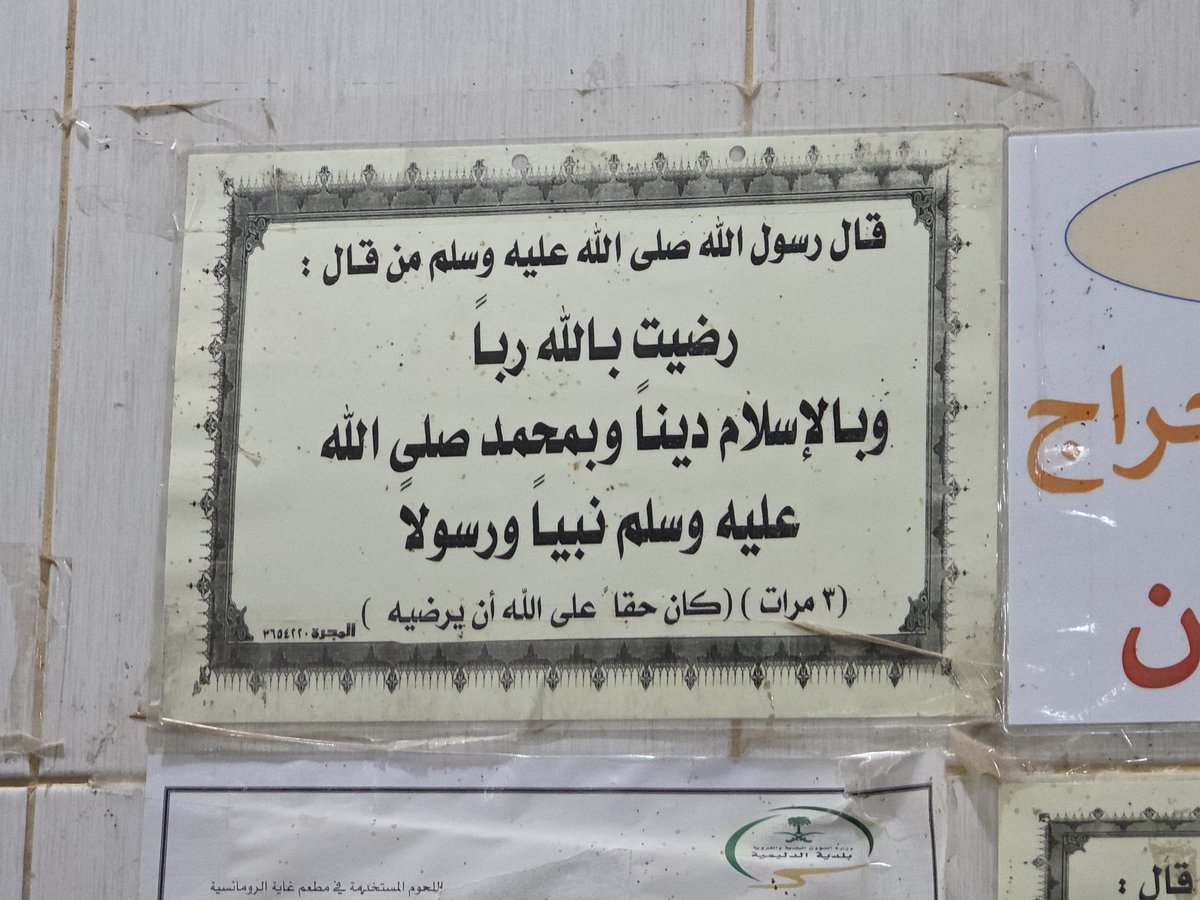 قال رسول الله صلى الله عليه وسلم من قال :
رضيت بالله رباً
وبالإسلام ديناً وبمحمد صلى الله
عليه وسلم نبياً ورسولاً
(٣ مرات ) (كان حقا ً على الله أن يرضيه )
المجرة ٣٦٥٤٢٢٠
راج
ن
وزارة الشؤون البلدية والقروية
بلدية الدليمية
اللحوم المستخدمة في مطعم غاية الرومانسية
قال :